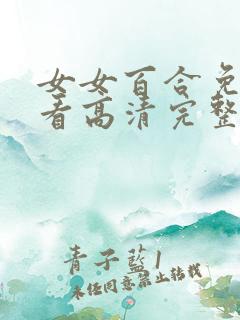 女女百合免
看高清完整
青子藍1
未经同意禁止转载